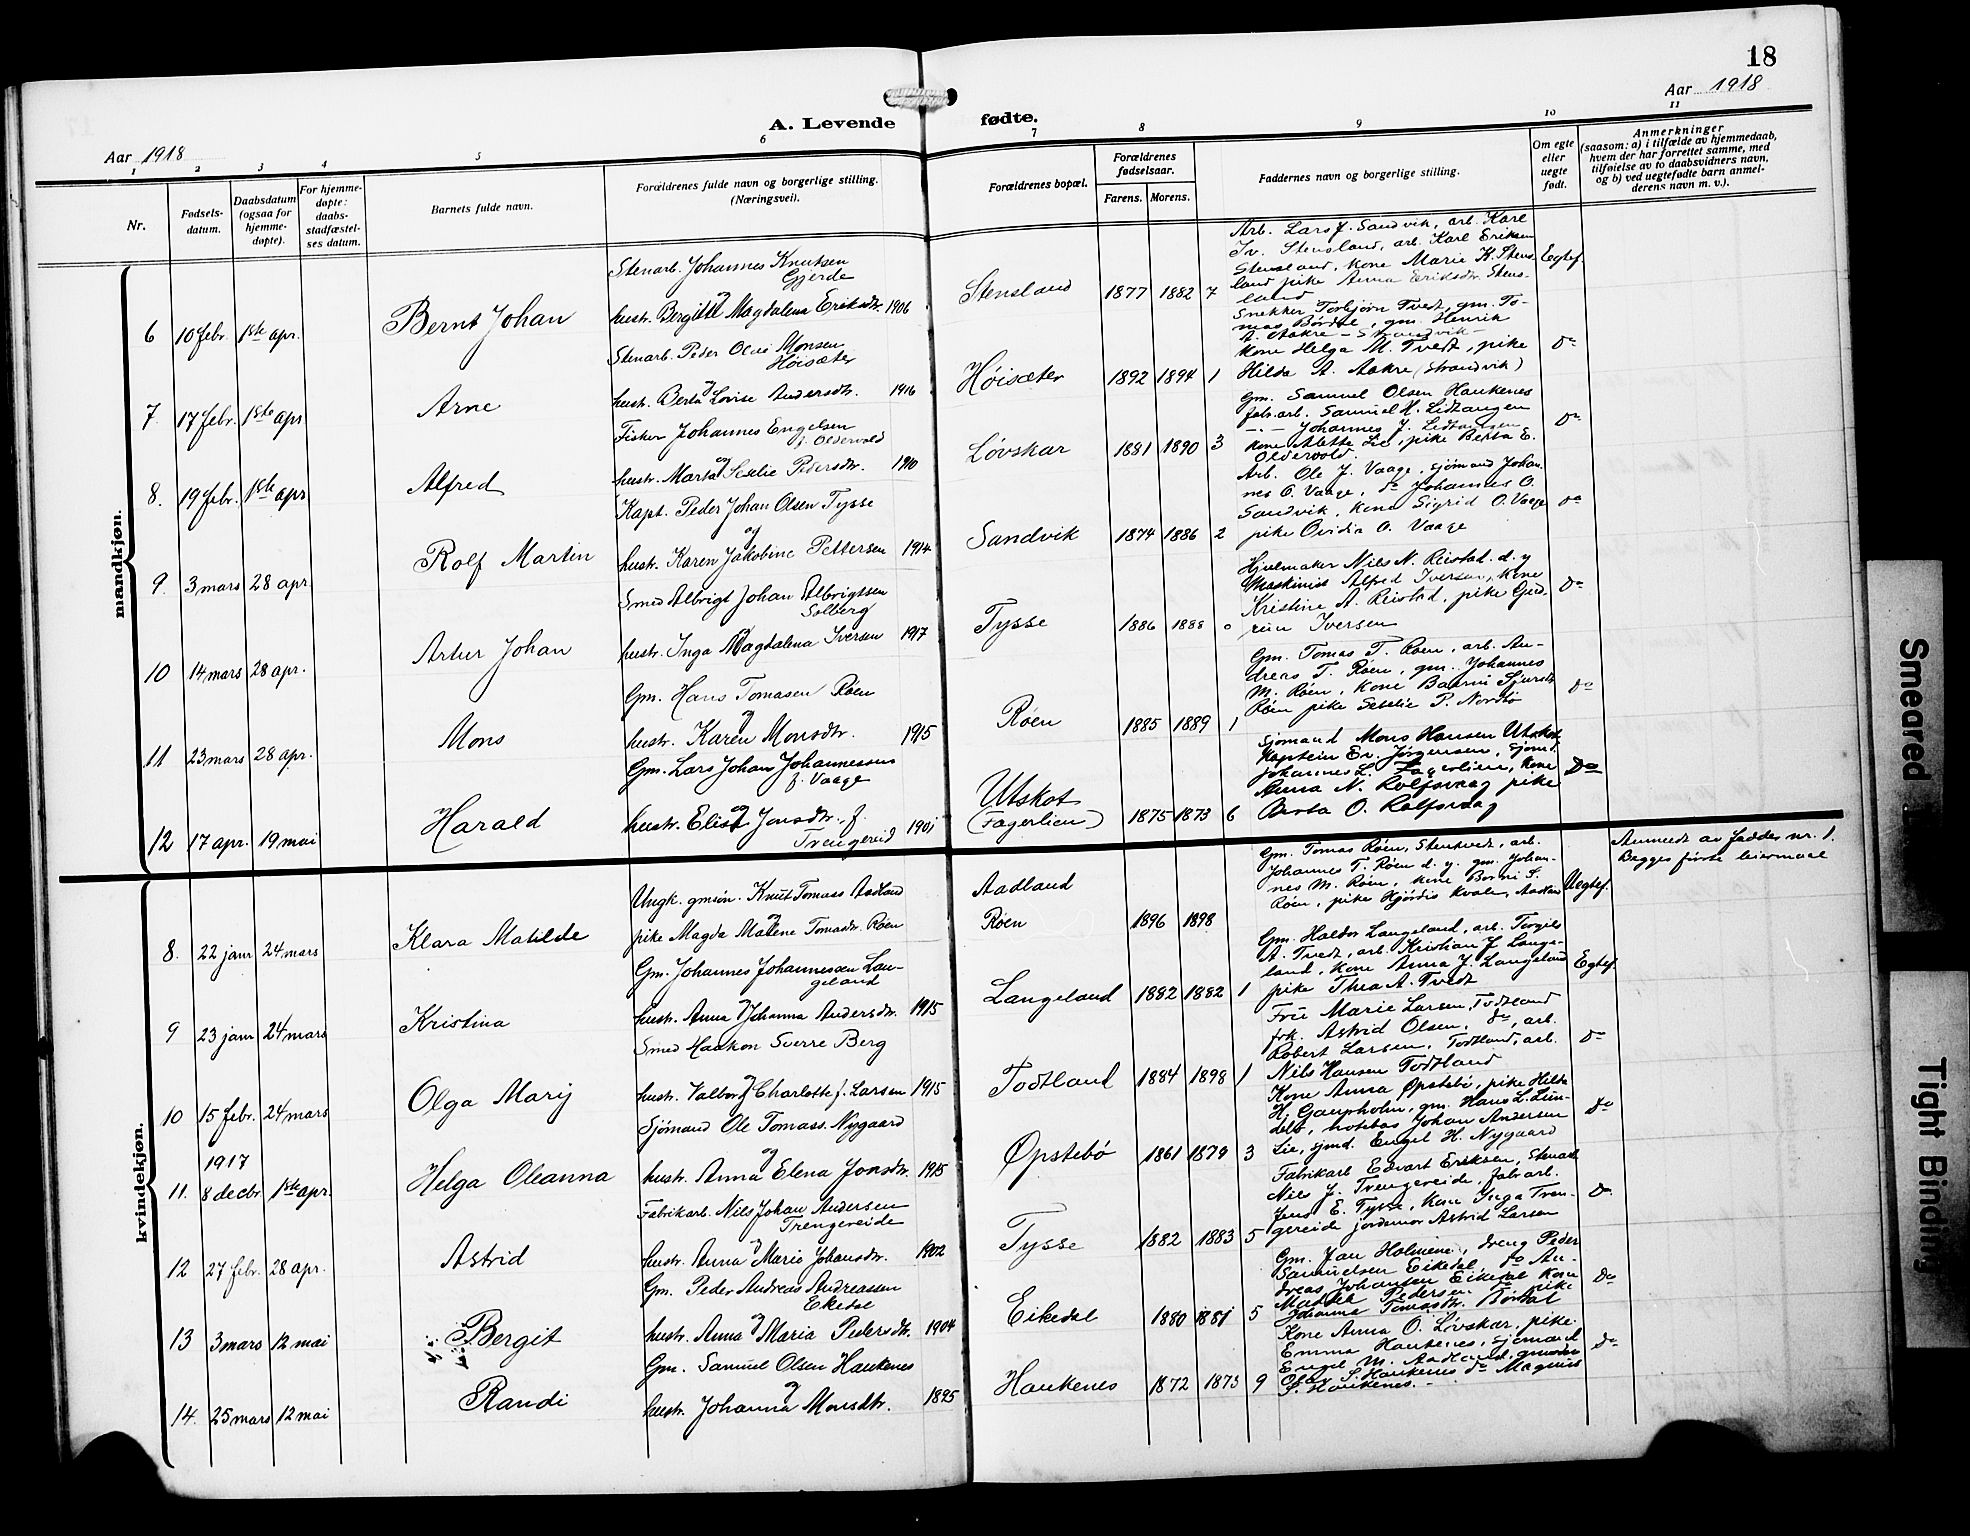 18
Aar 1918
Aar 1918
A. Levende fødte.
1 2 3 4 5 6 7 8 9 10 11
Nr.
Fødsels-
datum.
Daabsdatum
(ogsaa for
hjemme-
døpte).
For hjemme-
døpte:
daabs-
stadfæstel-
ses datum.
Barnets fulde navn.
Forældrenes fulde navn og borgerlige stilling.
(Næringsvei).
Forældrenes bopæl.
Forældrenes
fødselsaar.
Farens. Morens.
Faddernes navn og borgerlige stilling.
Om egte
eller
uegte
født.
Anmerkninger
(saasom: a) i tilfælde av hjemmedaab,
hvem der har forrettet samme, med
tilføielse av to daabsvidners navn,
og b) ved uegtefødte barn anmel-
derens navn m. v.).
mandkjøn.
6 10 febr. 1ste apr. Bernt Johan
Stenarb. Johannes Knutsen
Gjerde
og
hustr. Bergitte Magdalena Eriksdtr. 1906
Stensland 1877 1882 7
Arb. Lars J. Sandvik, arb. Kare
Iv. Stensland, arb. Karl Eriksen
Stensland, kone Marie K. Stens-
land pike Anna Eriksdtr. Stens-
land
Egtef.
7. 17 febr. 1ste apr Arne
Stenarb. Peder Olai Monsen
Høisæter
og
hustr. Berta Lovise Andersdtr. 1916
Høisæter 1892 1894 1
Snekker Torbjørn Tvedt, gm. To-
mas Børdal, gm. Henrik
A. Aakre - Strandvik -
kone Helga M. Tvedt, pike
Hilda A. Aakre (Strandvik)
Do
8. 19 febr. 1ste apr Alfred
Fisker Johannes Engelsen
f. Oldervold
og
hustr. Marta Seselie Pedersdtr. 1910
Løvskar 1881 1890 3
Gm. Samuel Olsen Haukenes
fabr.arb. Samuel H. Lidtangen
- " - Johannes J. Lidtangen
kone Alette Lie, pike Berta E.
Oldervold.
Do
9. 3 mars 28 apr. Rolf Martin
Kapt. Peder Johan Olsen Tysse
og
hustr. Karen Jakobine Pettersen 1914
Sandvik 1874 1886 2
Arb. Ole J. Vaage, sjömand Johan-
nes O. Vaage, do Johannes O.
Sandvik, kone Sigrid O. Vaage
pike Ovidia O. Vaage
Do
10 14 mars 28 apr. Artur Johan
Smed Albrigt Johan Albrigtsen
Solberg
og
hustr. Inga Magdalena Iversen 1917
Tysse 1886 1888 0
Hjulmaker Nils N. Reistad d. y
Maskinist Alfred Iversen, kone
Kristine A. Reistad, pike Gud-
run Iversen
Do
11 23 mars 28 apr. Mons
Gm. Hans Tomasen Røen
og
hustr. Karen Monsdtr. 1915
Røen 1885 1889 1
Gm. Tomas T. Røen, arb. An-
dreas T. Røen, gm. Johannes
M. Røen, kone Baarni Sjursdtr
Røen pike Seselie P. Nordbø
Do
12 17 apr. 19 mai Harald
Gm. Lars Johan Johannessen
f. Vaage
og
hustr. Elisa Jonsdtr. f.
Trengereid 1901
Utskot
(Fagerlien) 1875 1873 6
Sjömand Mons Hansen Utskot
Kaptein Ev. Jørgensen, sjömd.
Johannes L. Fagerlien, kone
Anna N. Rolfsvaag pike
Berta O. Rolfsvaag
Do
kvindekjøn.
8. 22 janr 24 mars Klara Matilde
Ungk. gmsøn. Knut Tomass Aadland
og
pike Magda Malene Tomasdtr. Røen
Aadland
Røen 1896 1898
Gm. Tomas Røen, Stentvedt, arb.
Johannes T. Røen d. y. gm. Johan-
nes M. Røen, kone Borni S.
Røen, pike Hjördis Kvale, Aadland
Uegtef.
Anmeldt av fadder nr. 1.
Begges første leiermaal
9 23 janr 24 mars Kristina
Gm. Johannes Johannessen Lan-
geland
og
hustr. Anna Johanna Andersdtr. 1915
Langeland 1882 1882 1
Gm. Haldor Langeland, arb. Torgils
A. Tvedt, arb. Kristian J. Lange-
land, kone Anna J. Langeland
pike Thea A. Tvedt
Egtef.
10 15 febr. 24 mars Olga Marij
Smed Haakon Sverre Berg
og
hustr. Valborg Charlotte f. Larsen 1915
Todtland 1884 1898 1
Frü Marie Larsen, Todtland
frk. Astrid Olsen, do, arb.
Robert Larsen, Todtland, arb.
Nils Hansen Todtland
Do
1917
11. 8 decbr. 1ste apr. Helga Oleanna
Sjömand Ole Tomass. Nygaard
og
hustr. Anna Elena Jonsdtr. 1915
Øpstebø 1861 1879 3
Kone Anna Øpstebø, pike Hilda
H. Gaupholm, gm. Hans L. Lun-
delv, notebas Johan Andersen
Lie, sjmd. Engel H. Nygaard
Do
12 27 febr. 28 apr. Astrid
Fabrikarb. Nils Johan Andersen
Trengereide
og
hustr. Anna Marie Johansdtr. 1902
Tysse 1882 1883 5
Fabrikarb Edvart Eriksen, Stenarb
Nils J. Trengereide, fabrarb.
Jens E. Tysse, kone Inga Tren-
gereide jordmor Astrid Larsen
Do.
13 3 mars 12 mai Bergit
Gm. Peder Andreas Andreassen
Ekedal
og
hustr. Anna Maria Pedersdtr. 1904
Eikedal 1880 1881 5
Gm. Jan Holmene, dreng Peder
Samuelsen Eikedal, do An-
dreas Johansen Eikedal kone
Pedersen pike
Johanna Tomasdtr. Børdal
Do
14. 25 mars 12 mai Randi
Gm. Samuel Olsen Haukenes
og
hustr. Johanna Monsdtr. 1895
Haukenes 1872 1873 9
Kone Anna O. Løvskar, pike
Emma Haukenes, sjömand
Engel M. Aadland, gmsøn
Olav S. Haukenes do Magnus
S. Haukenes. -
Do
Smeared
Tight Binding